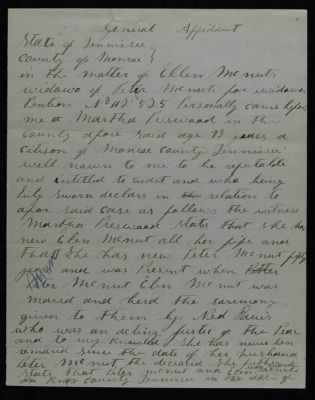 General Affidavit
State of Tennissee
County of Monroe
in the matter of Ellen McNutt
widow of Peter McNutt for widows
Pention No 525 Personally came before
me a Martha Preswood in the
County afore said age 73 years a
citizen of Monroe County Tennissee
well nown to me to be reputable
and intitled to credit and who being
duly swarn declars in relation to
afor said case as follows the witness
Martha Preswood stats that she has
now Ellen McNutt all her life and
that She has now Peter McNutt fifty
years and was Present when Peter
McNutt Elen McNutt was
maried and herd the saremony
given to them by Ned
who was an acting justice of the Peac
and to my knowledge She has never ben
remaried since the date of her husband
Peter McNutt the deceased She
stats that Peter McNutt and Elen
in Knox County Tennissee in the date of